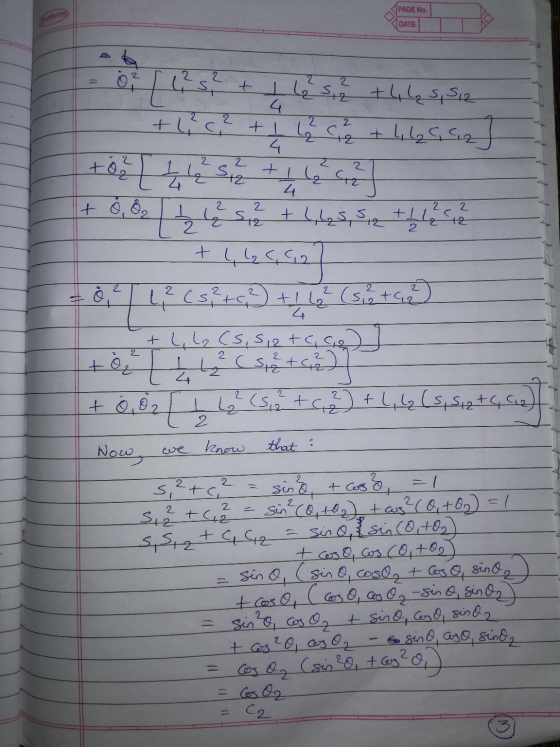 PAGE No.
DATE
= θ̇₁² [ l₁² s₁² + 1/4 l₂² s₁₂² + l₁ l₂ s₁ s₁₂
+ l₁² c₁² + 1/4 l₂² c₁₂² + l₁ l₂ c₁ c₁₂ ]
+ θ̇₂² [ 1/4 l₂² s₁₂² + 1/4 l₂² c₁₂² ]
+ θ̇₁ θ̇₂ [ 1/2 l₂² s₁₂² + l₁ l₂ s₁ s₁₂ + 1/2 l₂² c₁₂²
+ l₁ l₂ c₁ c₁₂ ]
= θ̇₁² [ l₁² (s₁² + c₁²) + 1/4 l₂² (s₁₂² + c₁₂²)
+ l₁ l₂ (s₁ s₁₂ + c₁ c₁₂) ]
+ θ̇₂² [ 1/4 l₂² (s₁₂² + c₁₂²) ]
+ θ̇₁ θ̇₂ [ 1/2 l₂² (s₁₂² + c₁₂²) + l₁ l₂ (s₁ s₁₂ + c₁ c₁₂) ]
Now, we know that :
s₁² + c₁² = sin²θ₁ + cos²θ₁ = 1
s₁₂² + c₁₂² = sin²(θ₁+θ₂) + cos²(θ₁+θ₂) = 1
s₁ s₁₂ + c₁ c₁₂ = sinθ₁ sin(θ₁+θ₂)
+ cosθ₁ cos(θ₁+θ₂)
= sinθ₁ (sinθ₁ cosθ₂ + cosθ₁ sinθ₂)
+ cosθ₁ (cosθ₁ cosθ₂ - sinθ₁ sinθ₂)
= sin²θ₁ cosθ₂ + sinθ₁ cosθ₁ sinθ₂
+ cos²θ₁ cosθ₂ - sinθ₁ cosθ₁ sinθ₂
= cosθ₂ (sin²θ₁ + cos²θ₁)
= cosθ₂
= c₂
3